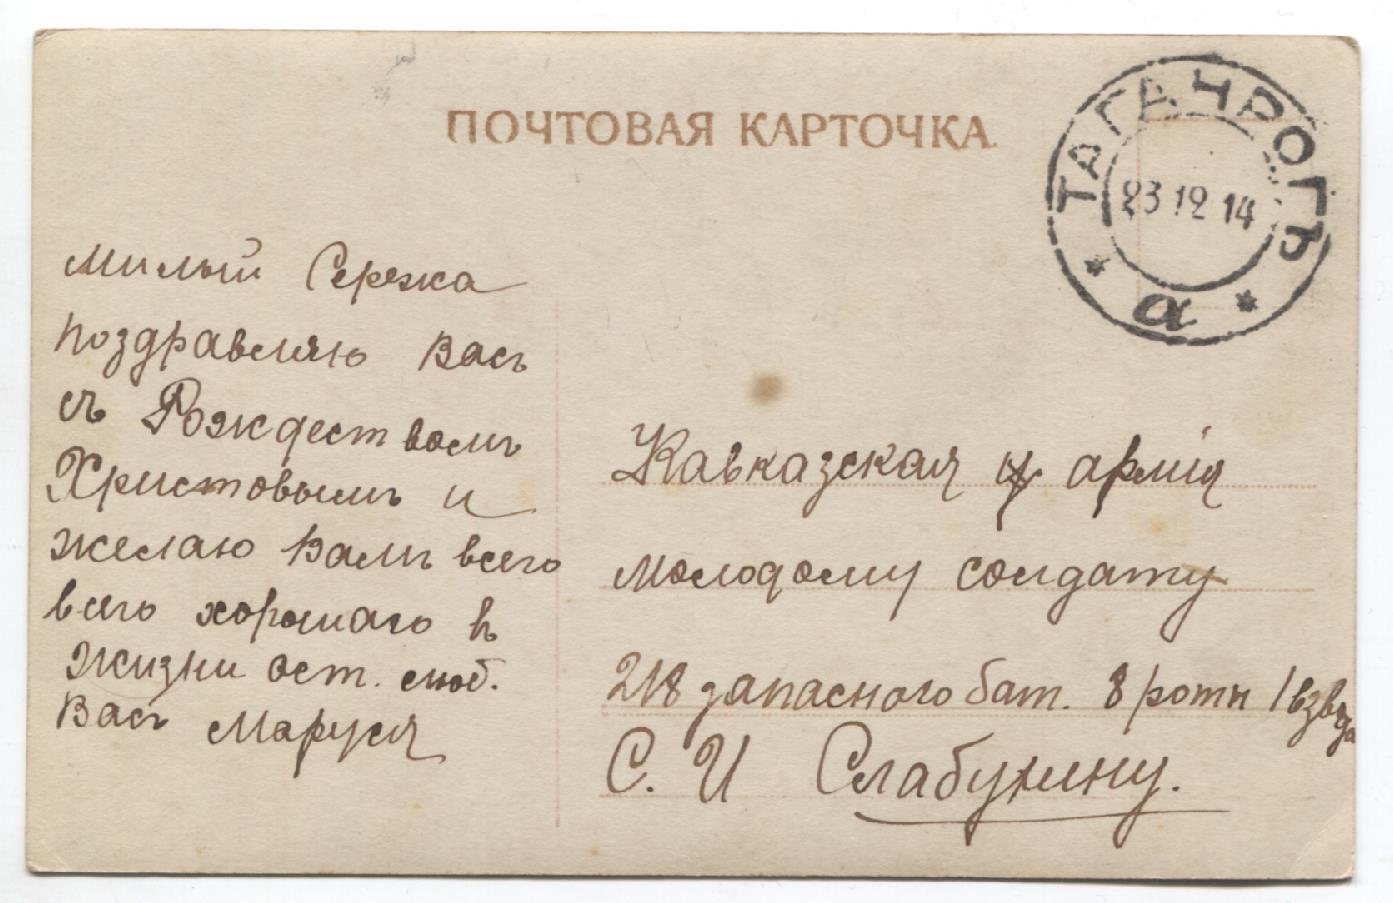 ПОЧТОВАЯ КАРТОЧКА
ТАГАНРОГЪ
23 12 14
а
Милый Сережа
поздравляю Васъ
съ Рождествомъ
Христовымъ и
желаю Вамъ всего
всего хорошаго въ
жизни ост. люб.
Васъ Маруся
Кавказская армія
молодому солдату
218 запасного бат. 8 роты 1 взвода
С. И Слабунину.